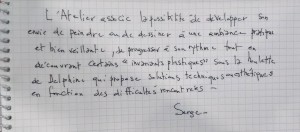 L'Atelier associe la possibilité de développer son
envie de peindre ou de dessiner à une ambiance pratique
et bien veillante, de progresser à son rythme tout en
découvrant certains "invariants plastiques" sous la houlette
de Delphine qui propose solutions techniques esthétiques
en fonction des difficultés rencontrées -
Serge -